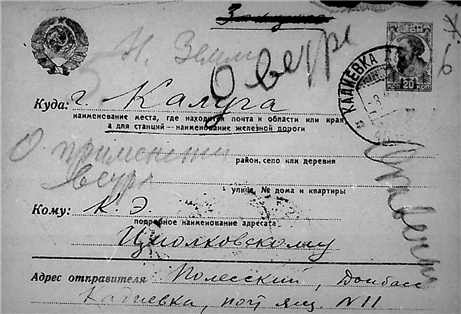 Заказное
Н. Земля
О веере
КАДИЕВКА
20
КОП
Куда: г Калуга
наименование места, где находится почта и области или края,
а для станций — наименование железной дороги
О применении
район, село или деревня
улица, № дома и квартиры
Кому: К. Э.
подробное наименование адресата
Циолковскому
Адрес отправителя Полесский, Донбасс
Кадиевка, почт ящ. N 11